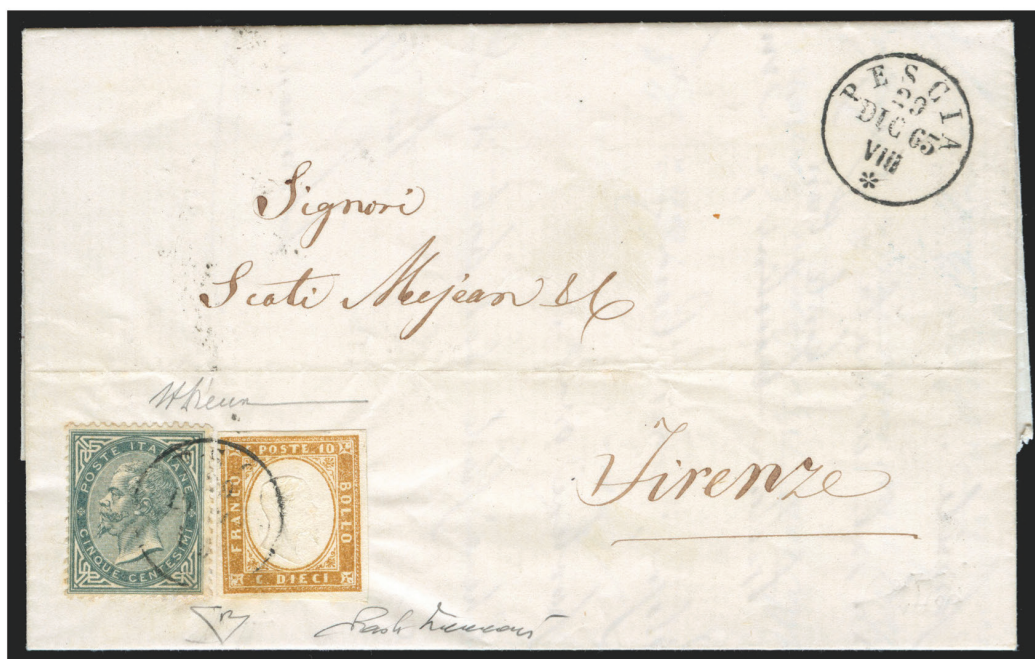 PESCIA
29
DIC 63
VIII
*
Signori
Scoti Mejean & C
Firenze
POSTE ITALIANE
CINQUE CENTESIMI
POSTE 10
FRANCO
BOLLO
C DIECI